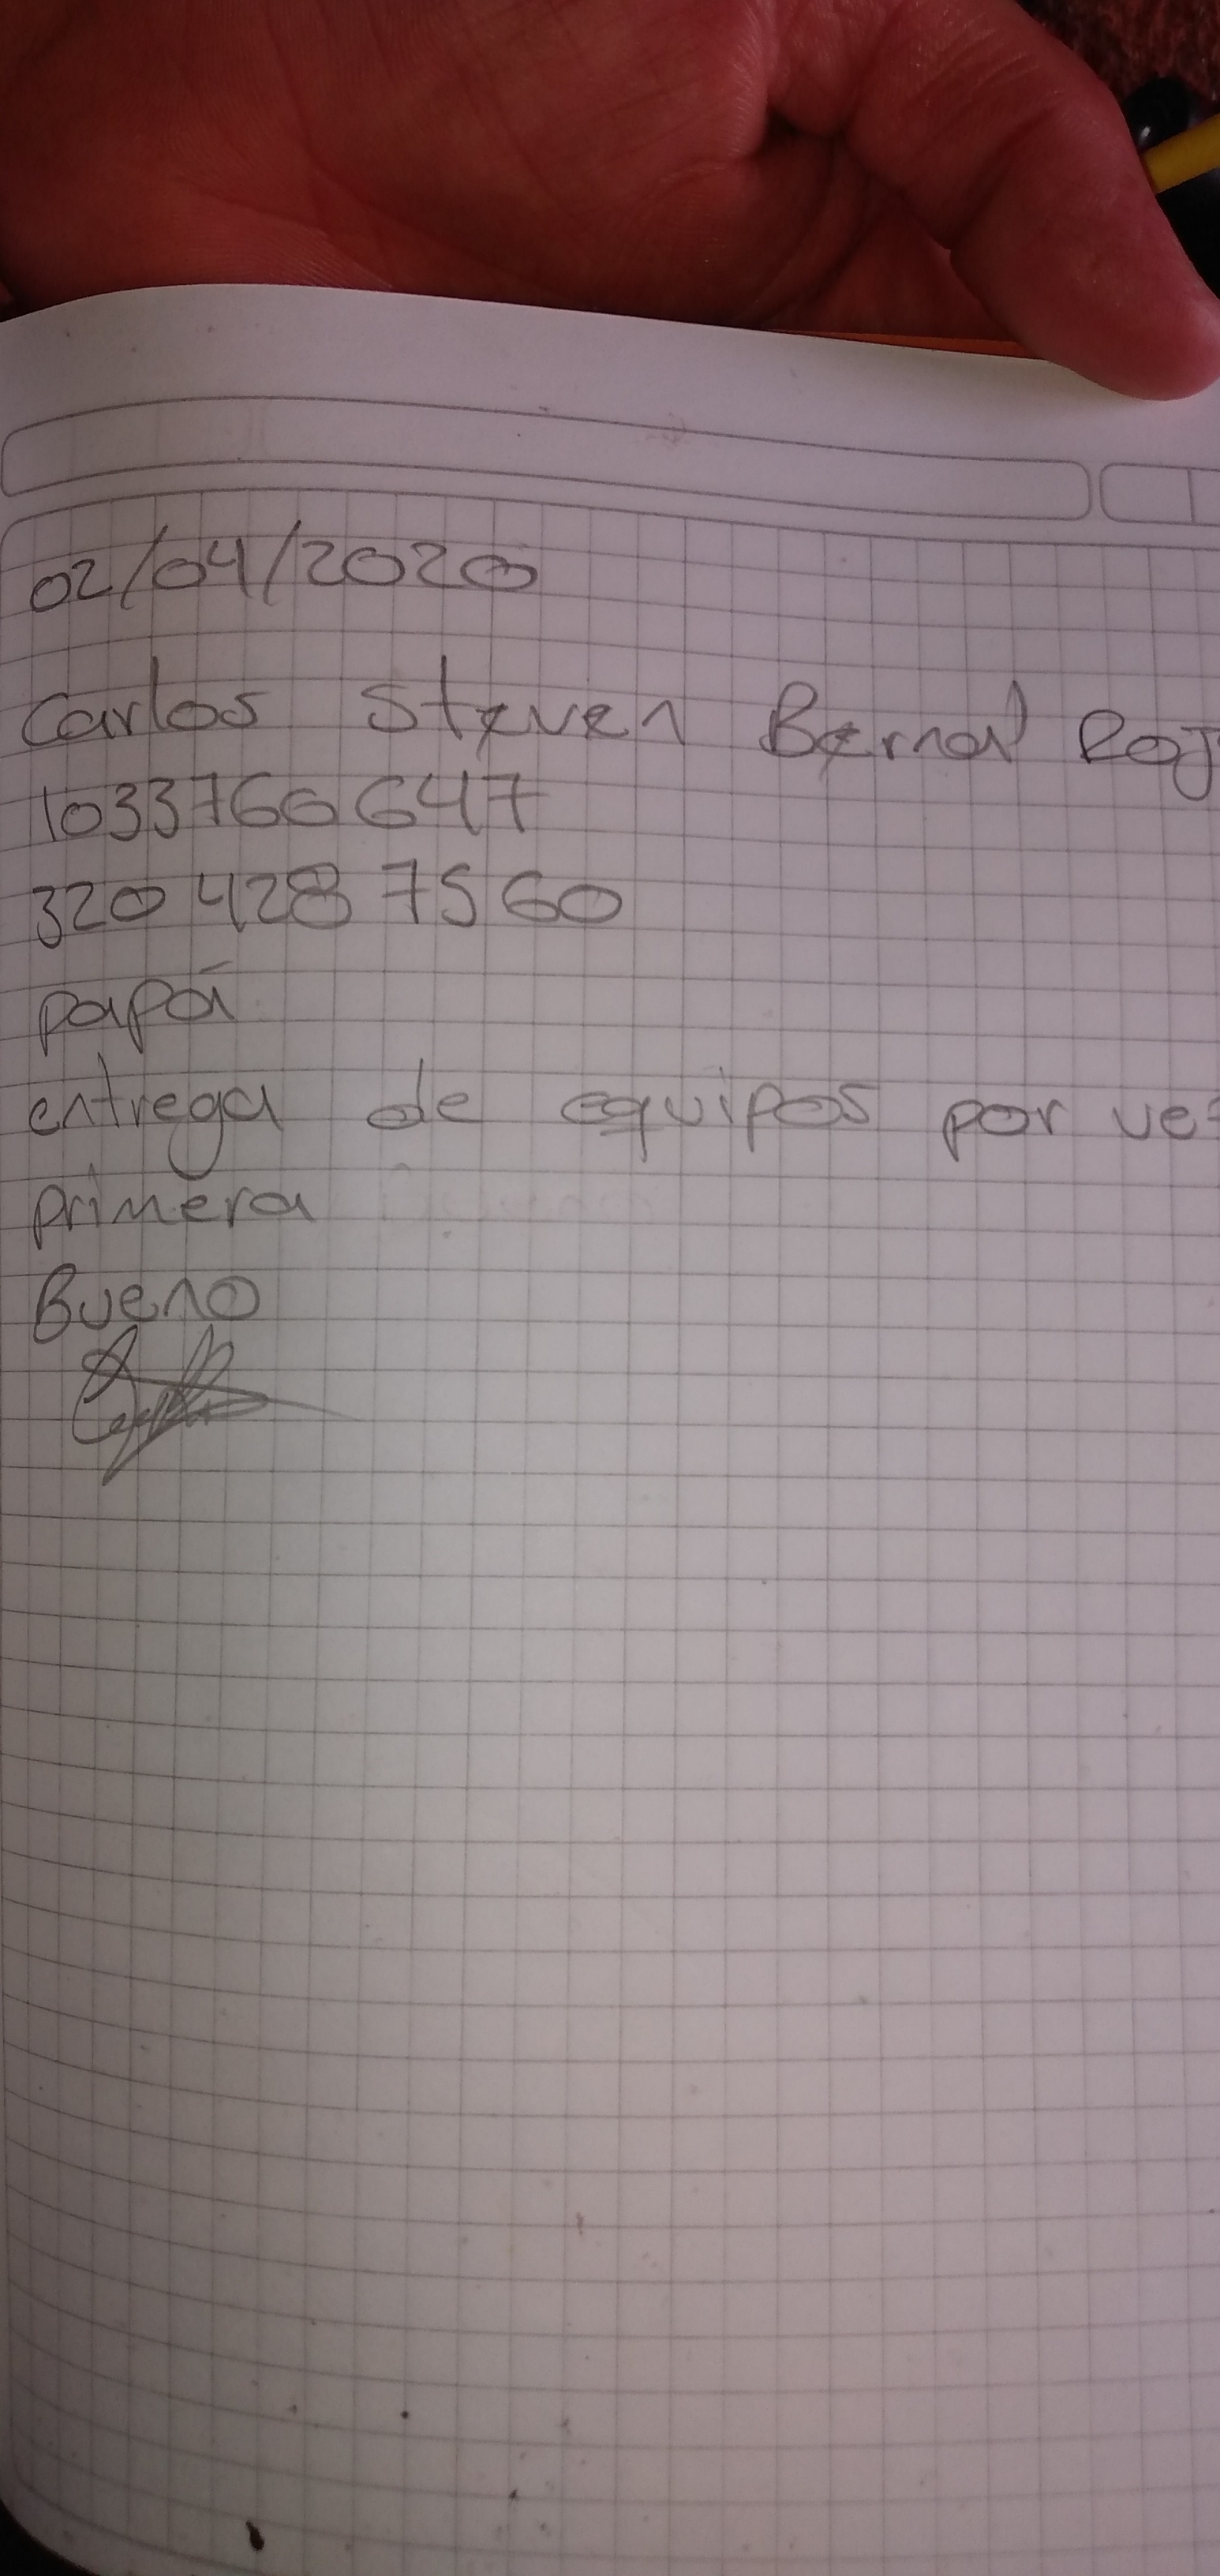 02/04/2020
Carlos Steven Bernal Roj
1033766647
320 428 7560
papá
entrega de equipos por vez
primera
Bueno